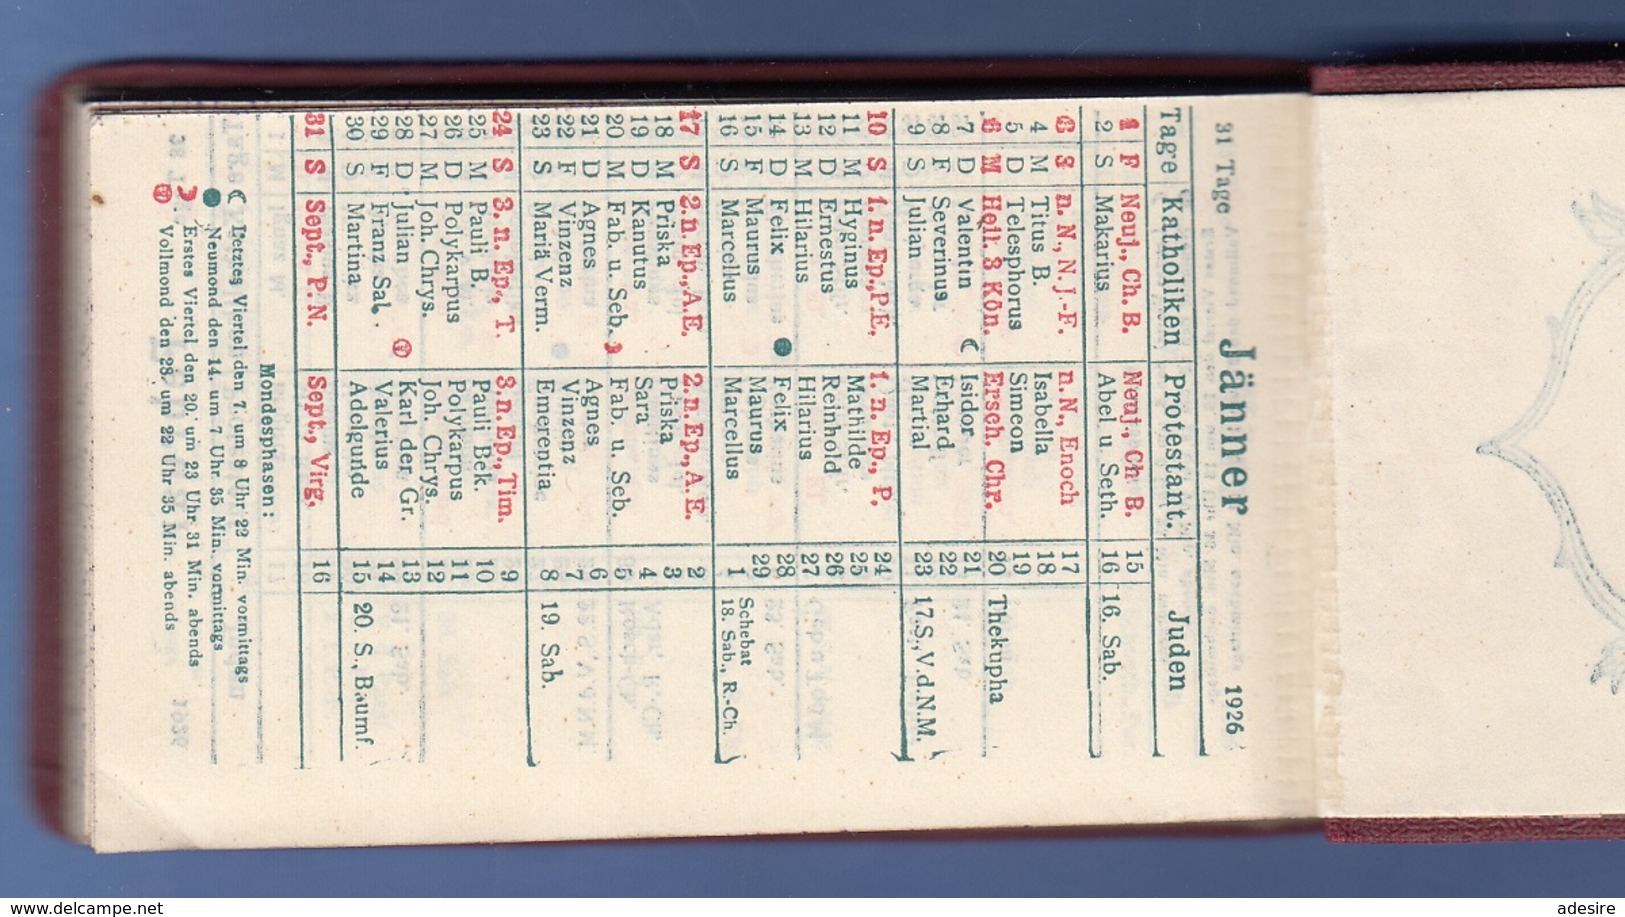 31 Tage Jänner 1926
Tage Katholiken Protestant. Juden
1 F Neuj., Ch. B. Neuj., Ch B. 15
2 S Makarius Abel u. Seth. 16 16. Sab.
3 S n. N., N. J.-F. n. N, Enoch 17
4 M Titus B. Isabella 18
5 D Telesphorus Simeon 19
6 M Heil. 3 Kön. Ersch. Chr. 20 Thekupha
7 D Valentin Isidor 21
8 F Severinus Erhard 22
9 S Julian Martial 23 17.S.,V.d.N.M.
10 S 1. n. Ep., P.E. 1. n. Ep., P. 24
11 M Hyginus Mathilde 25
12 D Ernestus Reinhold 26
13 M Hilarius Hilarius 27
14 D Felix Felix 28
15 F Maurus Maurus 29 Schebat
16 S Marcellus Marcellus 1 18. Sab., R.-Ch.
17 S 2. n Ep., A.E. 2. n. Ep., A. E. 2
18 M Priska Priska 3
19 D Kanutus Sara 4
20 M Fab. u. Seb. Fab. u. Seb. 5
21 D Agnes Agnes 6
22 F Vinzenz Vinzenz 7
23 S Mariä Verm. Emerentia 8 19. Sab.
24 S 3. n. Ep., T. 3. n. Ep., Tim. 9
25 M Pauli B. Pauli Bek. 10
26 D Polykarpus Polykarpus 11
27 M Joh. Chrys. Joh. Chrys. 12
28 D Julian Karl der Gr. 13
29 F Franz Sal. Valerius 14
30 S Martina Adelgunde 15 20. S., Baumf.
31 S Sept., P. N. Sept., Virg. 16
Mondesphasen:
Letztes Viertel den 7. um 8 Uhr 22 Min. vormittags
Neumond den 14. um 7 Uhr 35 Min. vormittags
Erstes Viertel den 20. um 23 Uhr 31 Min. abends
Vollmond den 28. um 22 Uhr 35 Min. abends
www.delcampe.net adesire